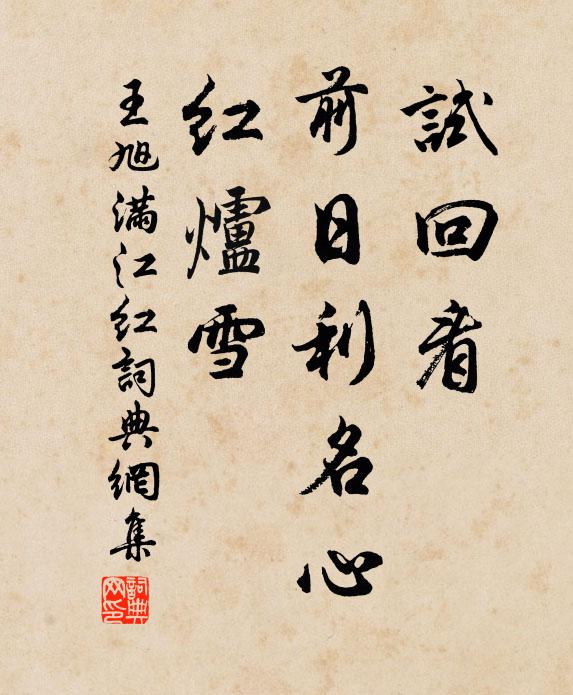 試回看
前日利名心
紅爐雪
王旭滿江紅詞典網集
詞典
网印